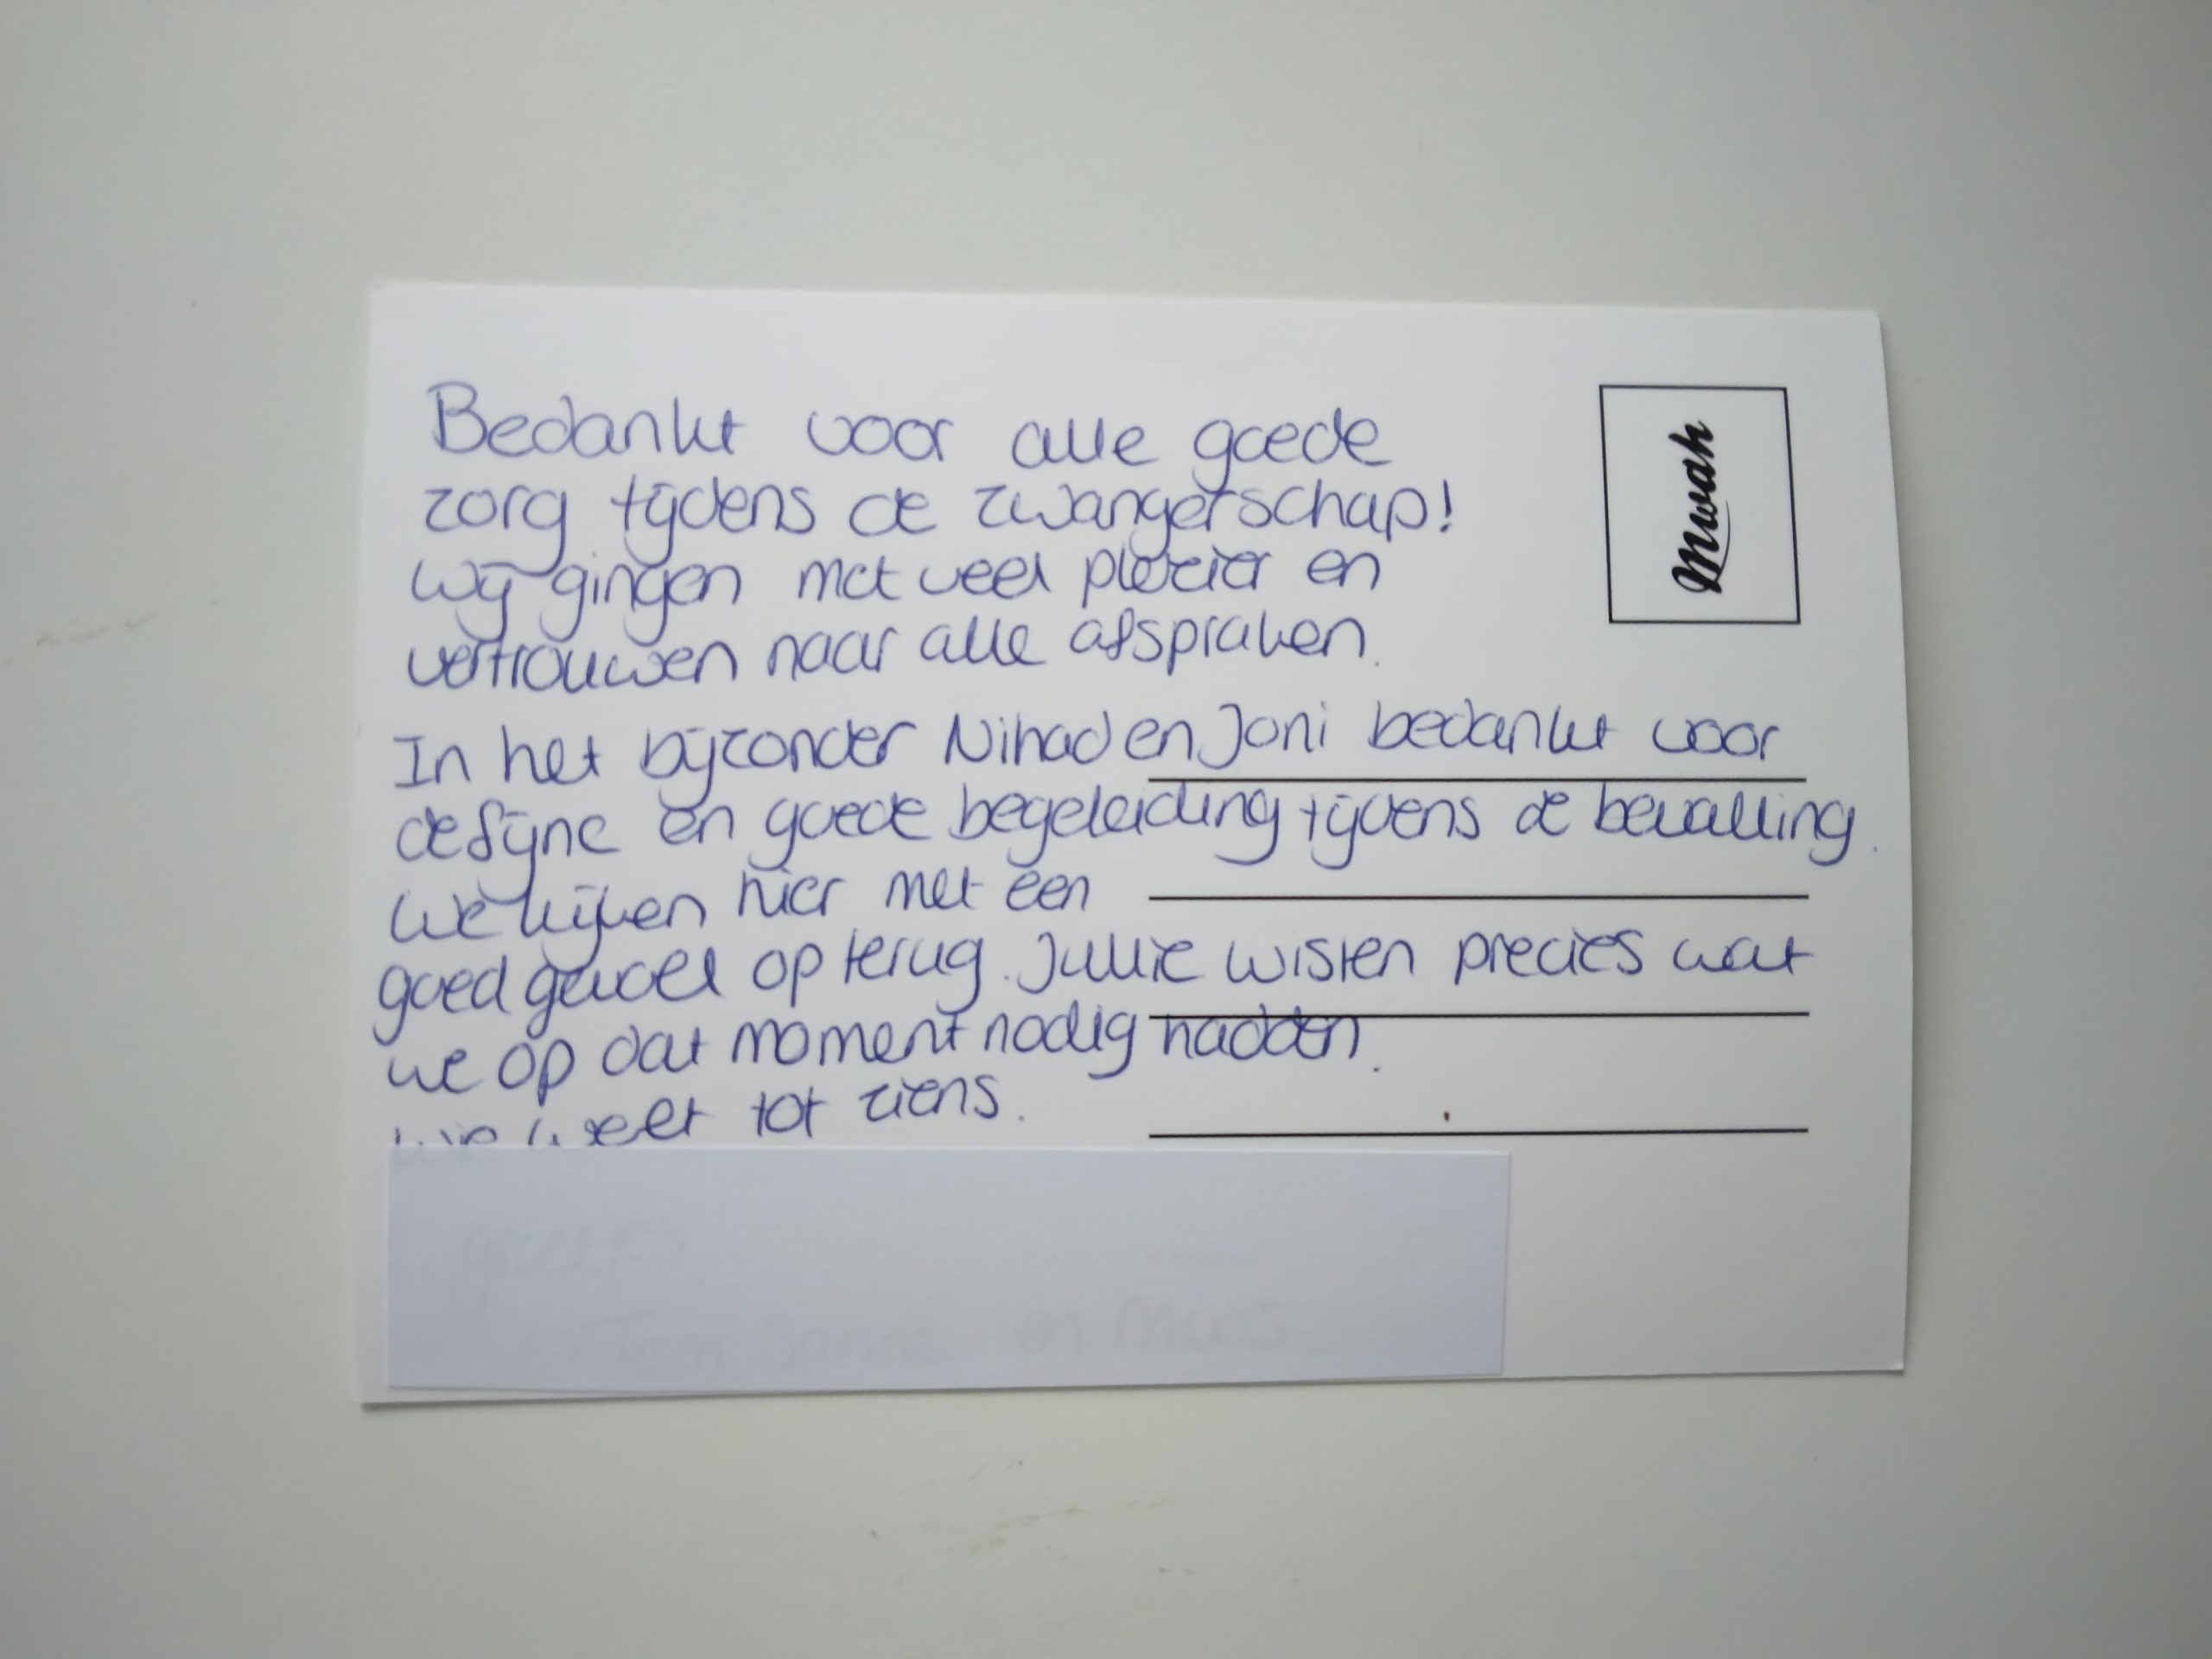 Bedankt voor alle goede
zorg tijdens de zwangerschap!
Wij gingen met veel plezier en
vertrouwen naar alle afspraken.
In het bijzonder Nihad en Joni bedankt voor
de fijne en goede begeleiding tijdens de bevalling.
We kijken hier met een
goed gevoel op terug. Jullie wisten precies wat
we op dat moment nodig hadden.
Wie weet tot ziens.
Mwah